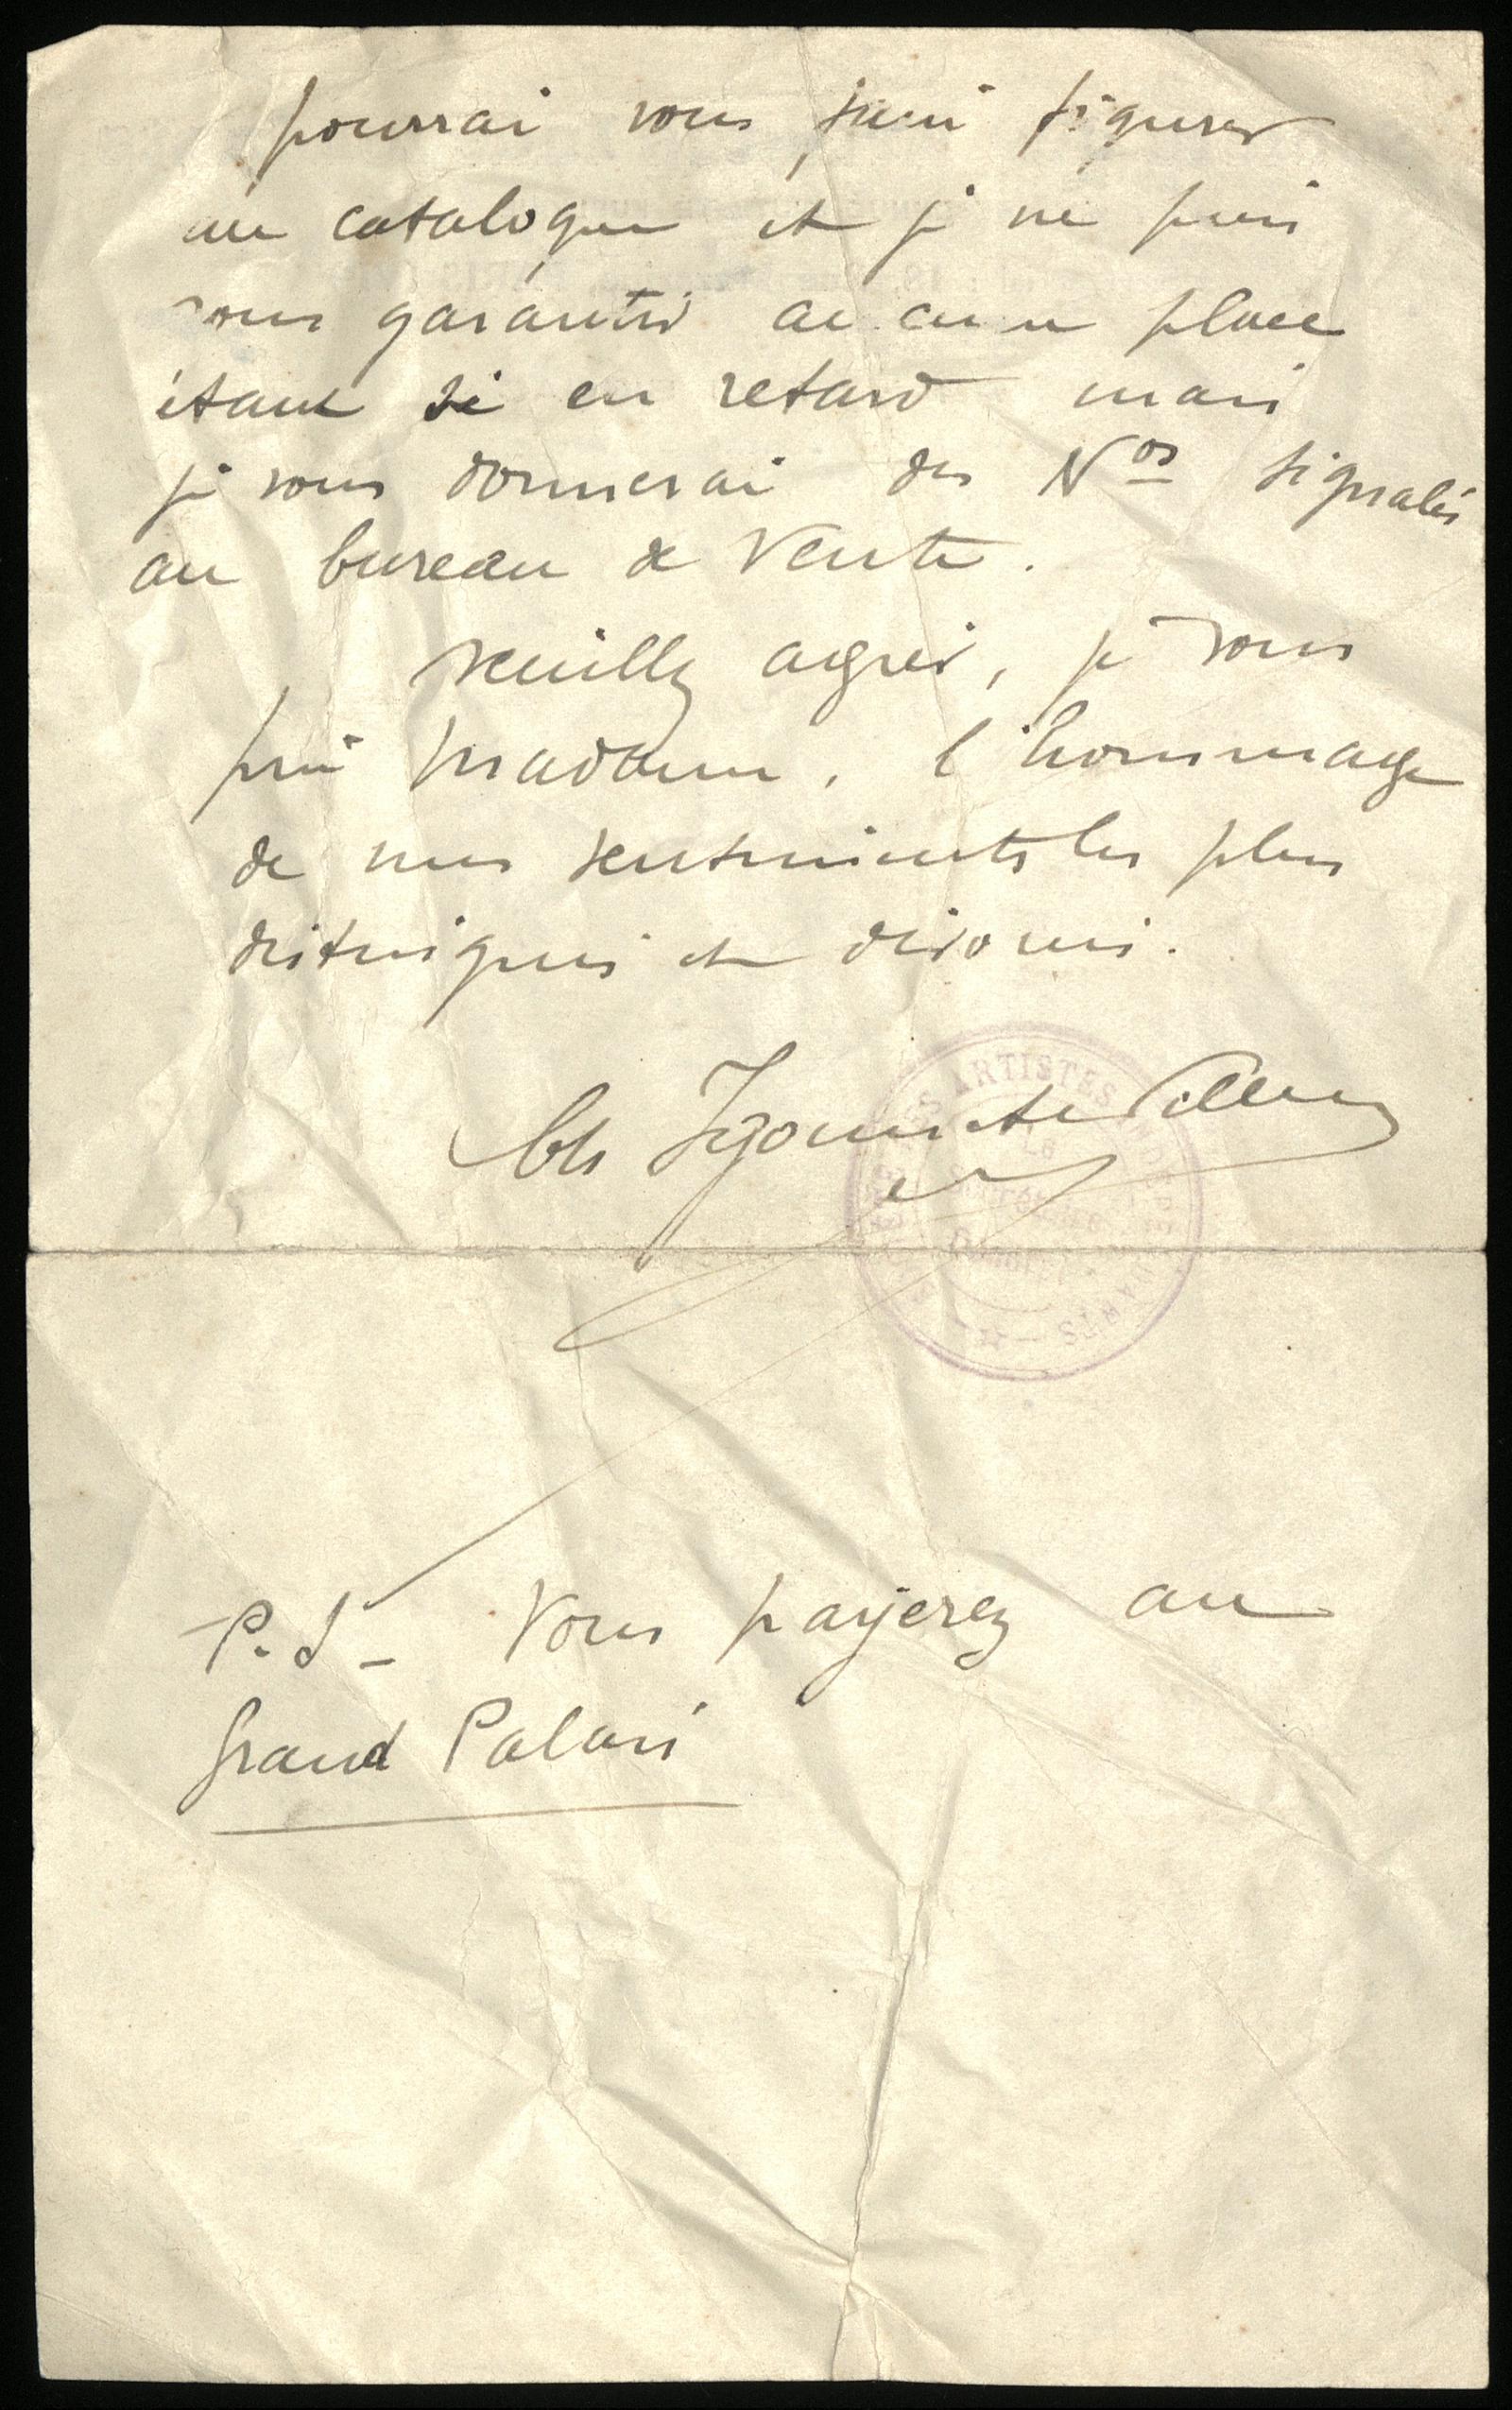 pourrai vous faire figurer
au catalogue et je ne puis
vous garantir aucune place
étant si en retard mais
je vous donnerai des Nos signalés
au bureau de Vente.
Veuillez agréer, je vous
prie Madame, l'hommage
de mes sentiments les plus
distingués et dévoués.
Ch
ARTISTES
P.S - Vous payerez au
Grand Palais